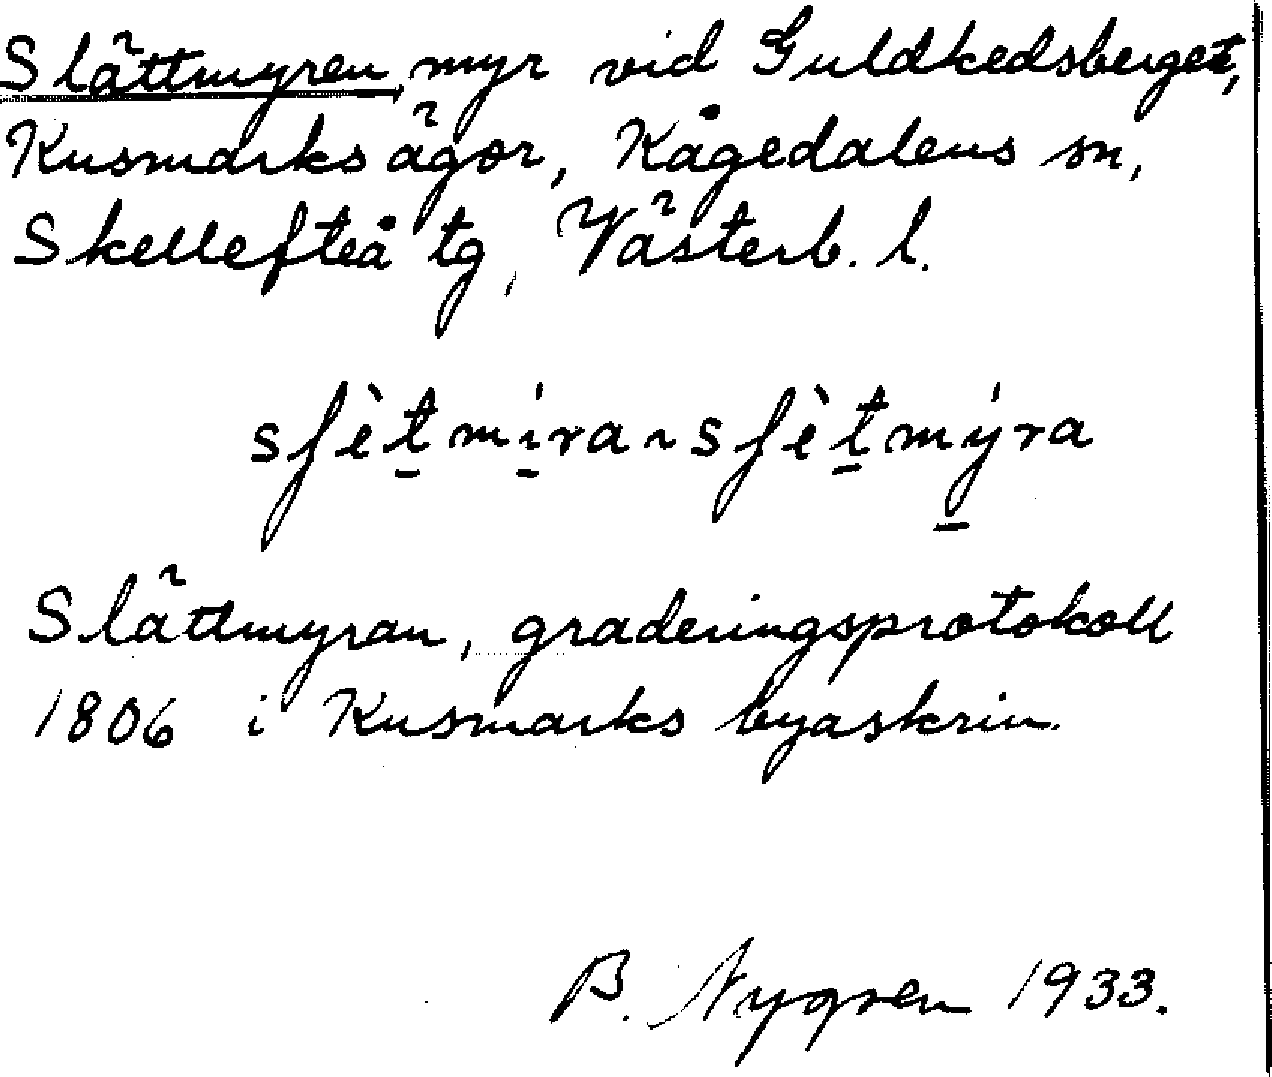 Slättmyren, myr vid Guldkedsberget,
Kusmarks ägor, Kågedalens sn,
Skellefteå tg, Västerb. l.
sʃèt̠mí̠ra ~ sʃèt̠mý̠ra
Slättmyran, graderingsprotokoll
1806 i Kusmarks byaskrin.
B. Nygren 1933.